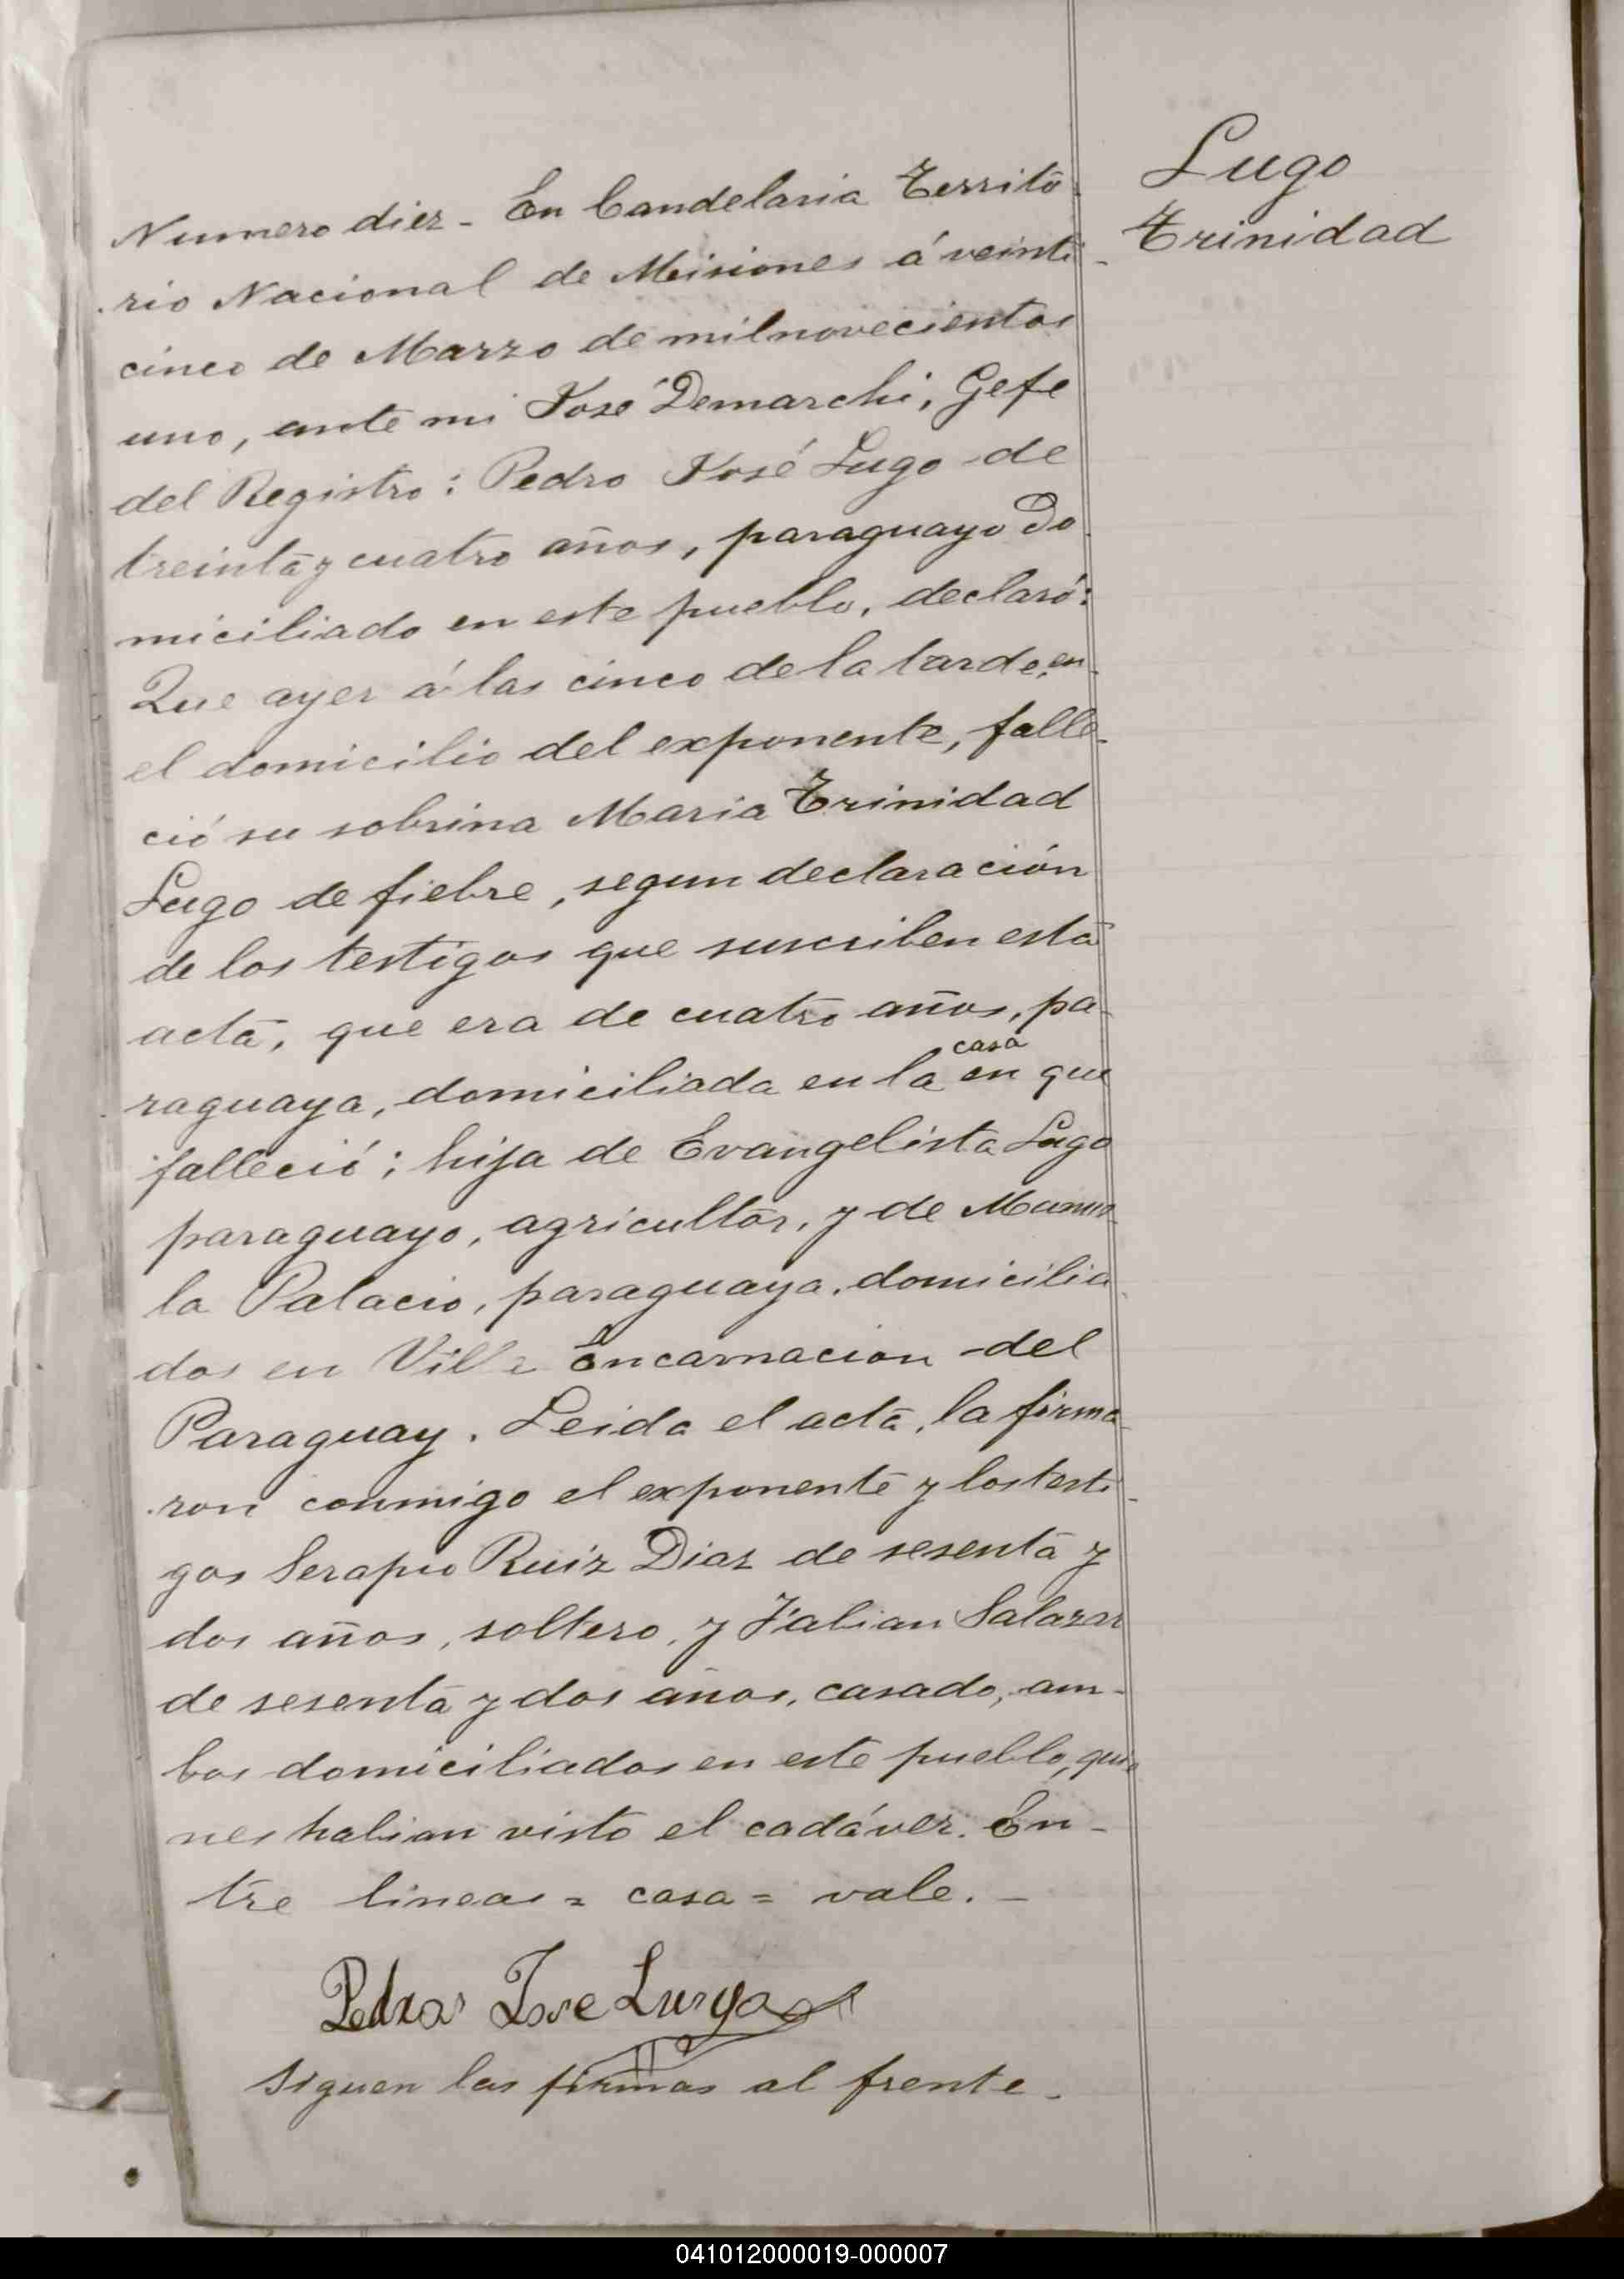 Lugo
Trinidad
Numero diez - En Candelaria Territo-
rio Nacional de Misiones á veinti-
cinco de Marzo de mil novecientos
uno, ante mi José Demarchi, Gefe
del Registro: Pedro José Lugo de
treinta y cuatro años, paraguayo do
miciliado en este pueblo, declaró:
Que ayer á las cinco de la tarde, en
el domicilio del exponente, falle-
ció su sobrina Maria Trinidad
Lugo de fiebre, segun declaración
de los testigos que suscriben esta
acta, que era de cuatro años, pa-
casa
raguaya, domiciliada en la en que
falleció; hija de Evangelista Lugo
paraguayo, agricultor, y de Manue-
la Palacio, paraguaya, domicilia
dos en Villa Encarnacion del
Paraguay. Leida el acta, la firma-
ron conmigo el exponente y los testi-
gos Serapio Ruiz Diaz de sesenta y
dos años, soltero, y Fabian Salazar
de sesenta y dos años, casado, am-
bos domiciliados en este pueblo, quie
nes habian visto el cadáver. En-
tre lineas = casa = vale. -
Pedro Jose Lugo
Siguen las firmas al frente -
041012000019-000007